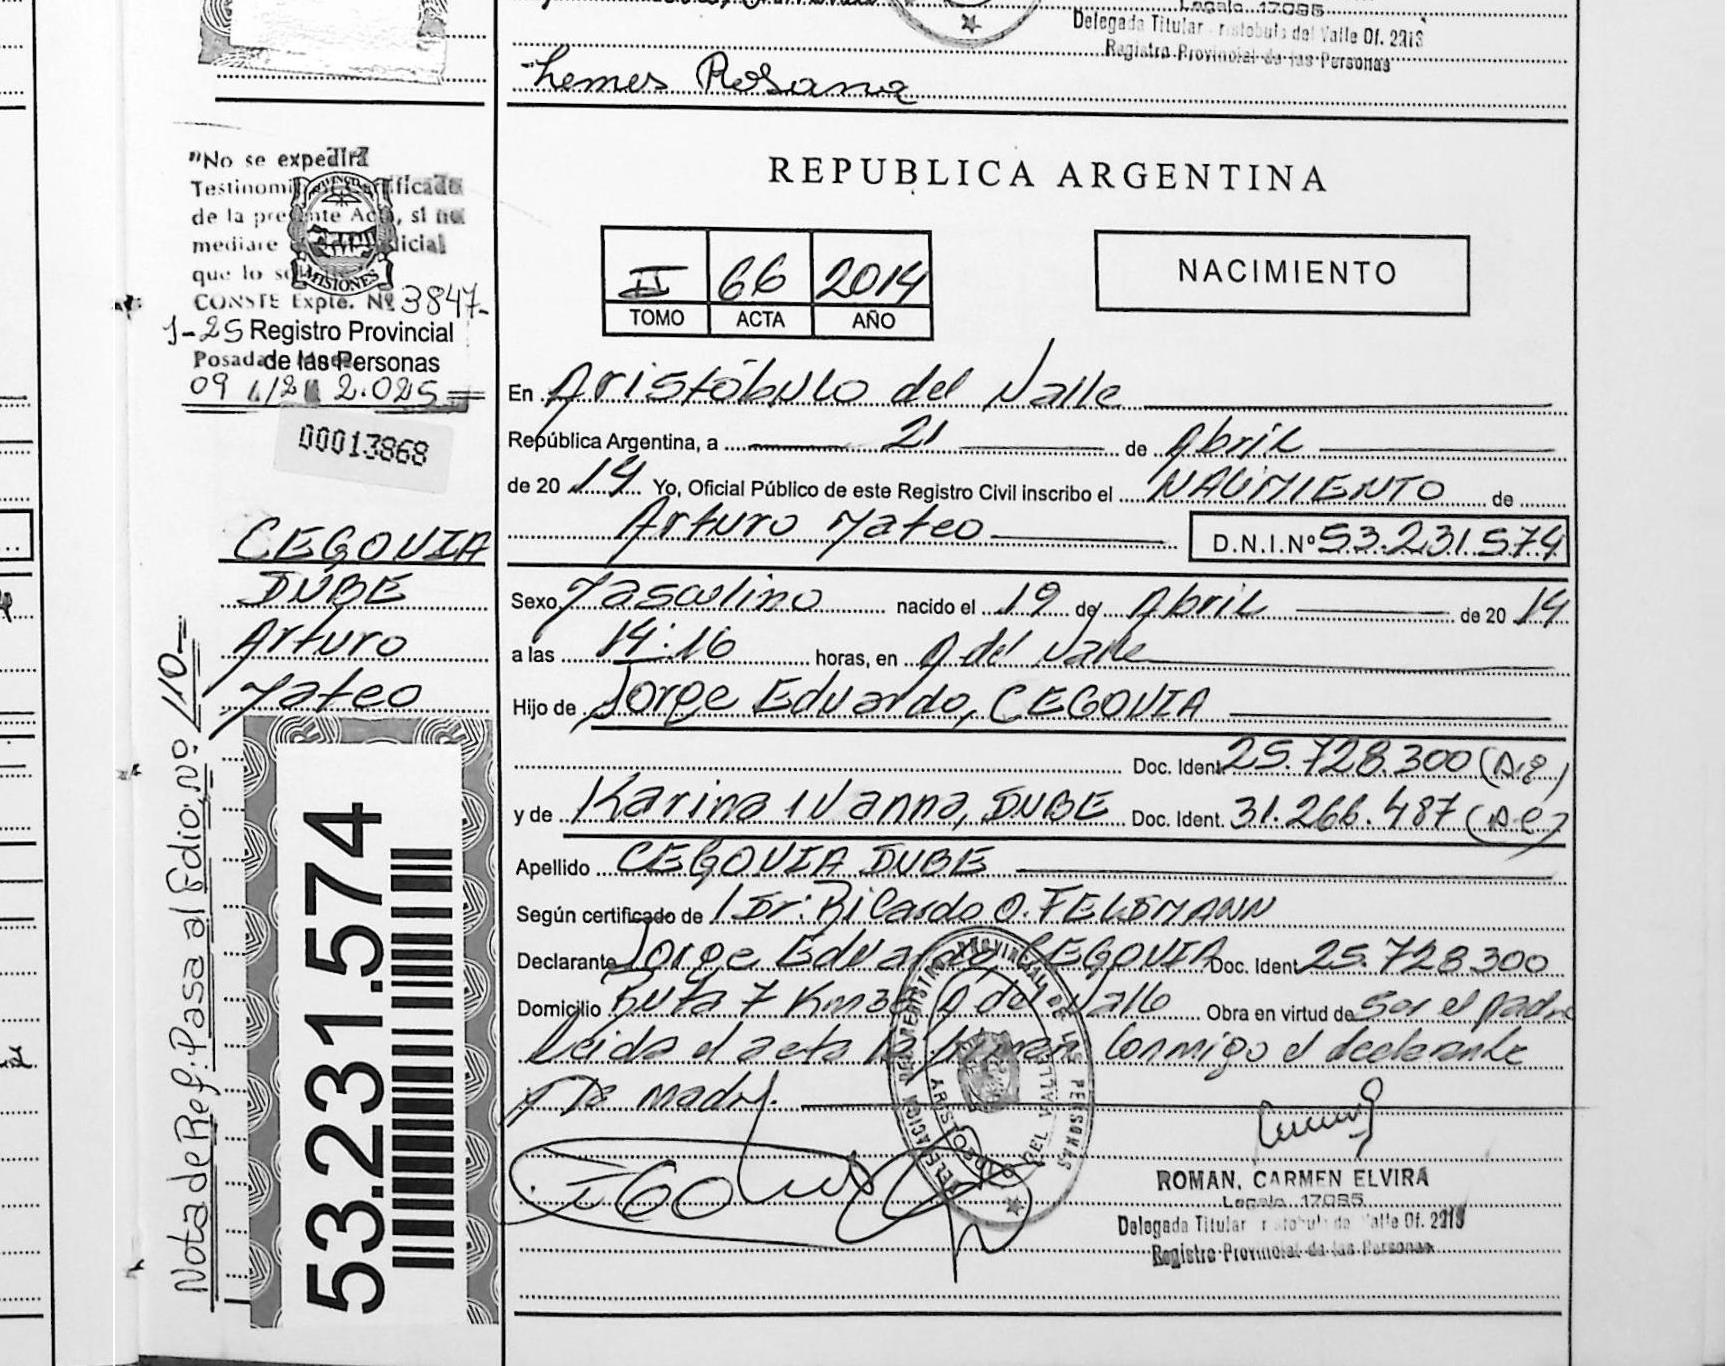 Legajo 17085
Delegada Titular ristobulo del Valle Of. 2213
Registro Provincial de las Personas
Lemes Rosana
"No se expedirá
Testimonio Certificado
de la presente Acta, si no
mediare judicial
que lo
CONSTE Expte. Nº 3847-
1-25 Registro Provincial
Posadas de las Personas
09 /12/ 2.025
00013868
CEGOVIA
DUBE
Arturo
Mateo
Nota de Ref: Pasa al Fdio, Nº: 110-
53.231.574
PROVINCIA MISIONES
REPUBLICA ARGENTINA
II 66 2014
TOMO ACTA AÑO
NACIMIENTO
En Aristóbulo del Valle
República Argentina, a 21 de Abril
de 20 14 Yo, Oficial Público de este Registro Civil inscribo el NACIMIENTO de
Arturo Mateo D.N.I.Nº 53.231.574
Sexo Masculino nacido el 19 de Abril de 20 14
a las 14:16 horas, en A del Valle
Hijo de Jorge Eduardo, CEGOVIA
Doc. Ident. 25.728.300
y de Karina Ivanna, DUBE Doc. Ident. 31.266.487
Apellido CEGOVIA DUBE
Según certificado de Dr: Ricardo O. FELDMANN
Declarante Jorge Eduardo CEGOVIA Doc. Ident. 25.728.300
Domicilio Ruta 7 Km 38 A del Valle Obra en virtud de Ser el padre
Leida el acta la firman Conmigo el declarante
y la madre.
ROMAN, CARMEN ELVIRA
Legajo 17085
Delegada Titular ristobulo de Valle Of. 2213
Registro Provincial de las Personas